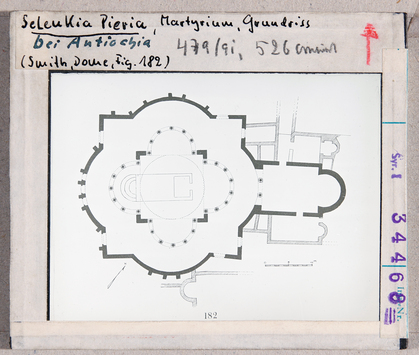 Seleukia Pieria, Martyrium, Grundriss
bei Antiochia 479/91, 526 erneuert
(Smith, Dome, Fig. 182)
Syr. 1
34468
Inv.-Nr.
182